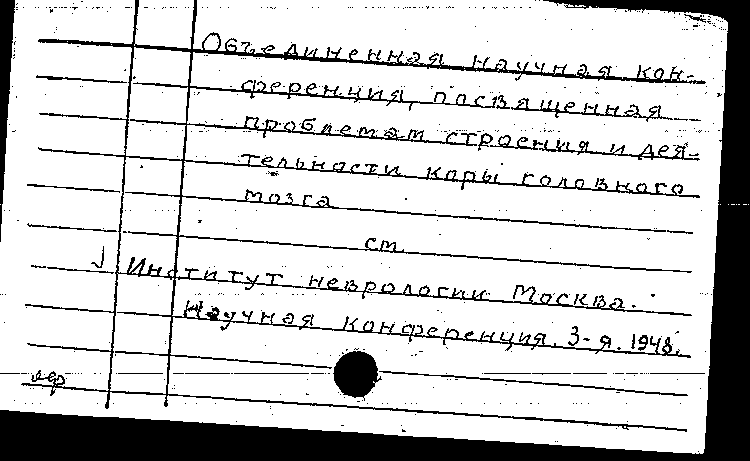 Объединенная научная кон-
ференция, посвященная
проблемам строения и дея-
тельности коры головного
мозга
см.
√ Институт неврологии. Москва.
Научная конференция. 3-я. 1948.